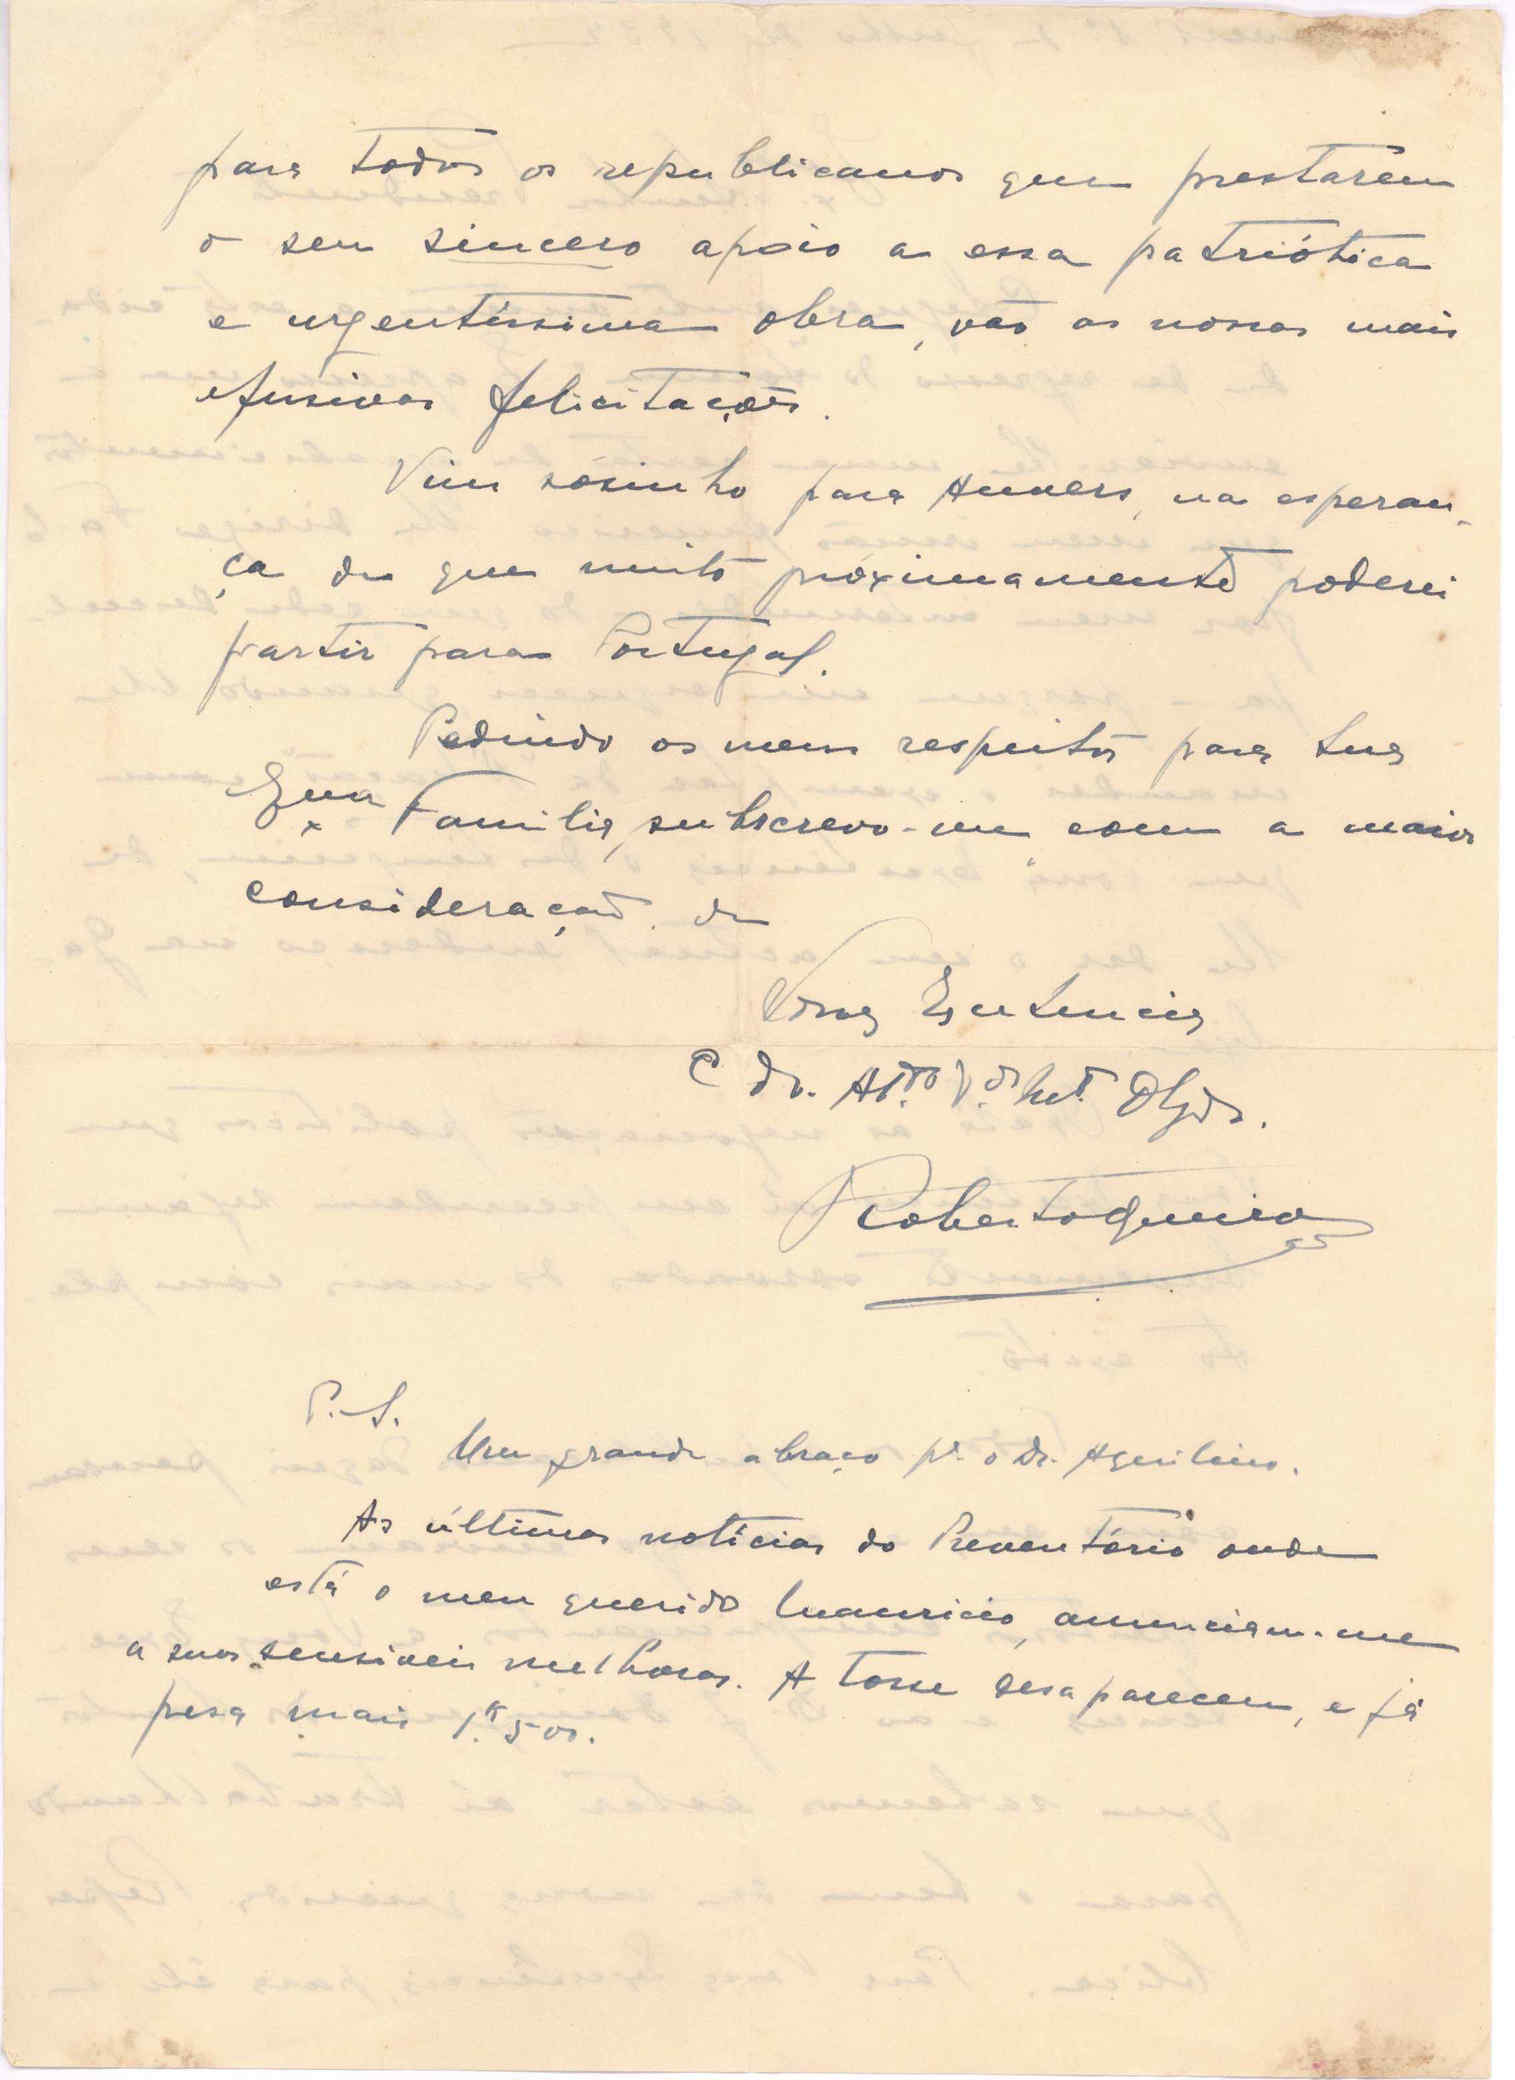 para todos os republicanos que prestarem
o seu sincero apoio a essa patriótica
e urgentíssima obra, vão as nossas mais
efusivas felicitações.
Vim sòsinho para Anvers, na esperan-
ça de que muito próximamente poderei
partir para Portugal.
Pedindo os meus respeitos para sua
Exma Familia, subscrevo-me com a maior
consideração de
Vossa Excelencia
C dr. At.do V.dr Mt. Obgdo.
Roberto Queiroz
P.S.
Um grande abraço pª. o Dr. Aquilino.
As últimas notícias do Preventório onde
está o meu querido Mauricio, anunciam-me
as suas sensiveis melhoras. A tosse desapareceu, e já
pesa mais 1.k500.